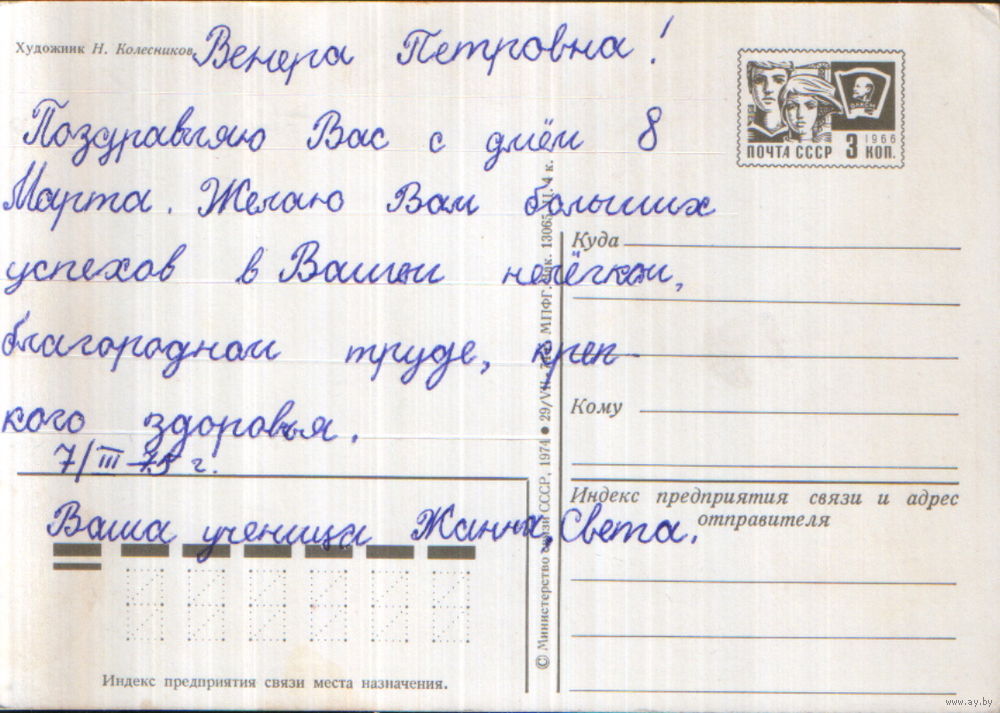 Художник Н. Колесников
Венера Петровна!
Поздравляю Вас с днём 8
Марта. Желаю Вам больших
успехов в Вашем нелёгком,
благородном труде, креп-
кого здоровья.
7/III-75 г.
Ваша ученица Жанна, Света.
Индекс предприятия связи места назначения.
© Министерство связи СССР, 1974 ● 29/VII-
МПФГ.
13065.
Ц. 4 к.
ПОЧТА СССР 3 КОП.
1966
ВЛКСМ
Куда
Кому
Индекс предприятия связи и адрес
отправителя
www.ay.by